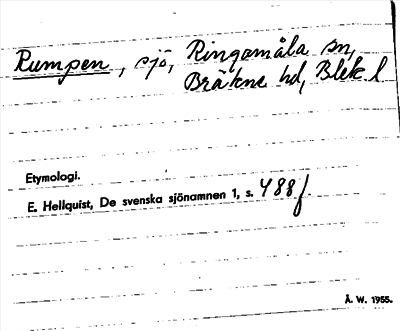 Rumpen, sjö, Ringamåla sn,
Bräkne hd, Blek l
Etymologi.
E. Hellquist, De svenska sjönamnen 1, s. 488 f
Å. W. 1955.